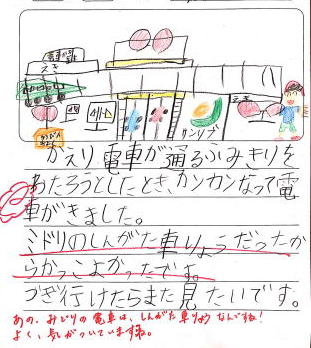 えき
サンリブ
かえり電車が通るふみきりを
わたろうとしたとき、カンカンなって電
車がきました。
ミドリのしんがた車りょうだったか
らかっこよかったです。
つぎ行けたらまた見たいです。
あの、みどりの電車は、しんがた車りょうなんですね!
よく、気がついていますね。